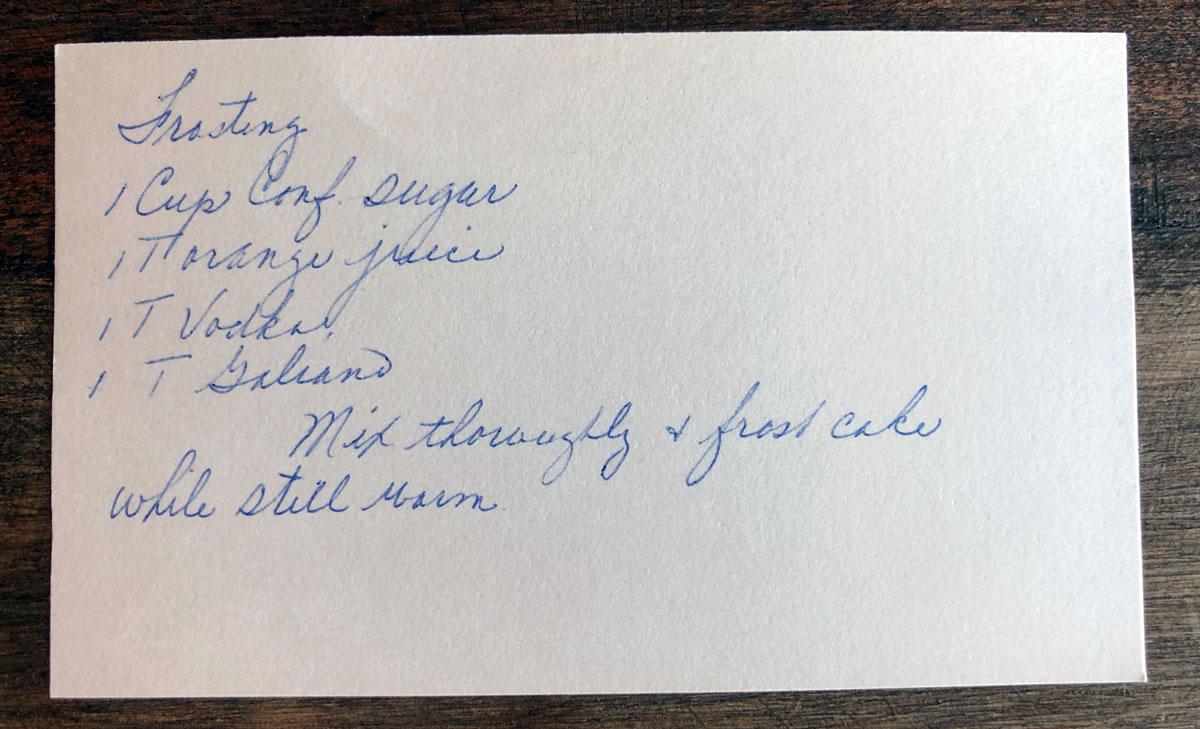 Frosting
1 Cup Conf. sugar
1 T orange juice
1 T Vodka
1 T Galiano
Mix thoroughly & frost cake
while still warm